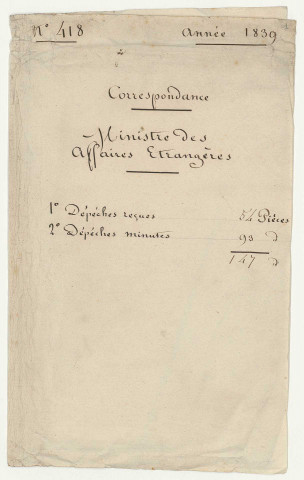 N° 418 Année 1839
Correspondance
Ministre des
Affaires Etrangères
1° Dépêches reçues 54 Pièces
2° Dépêches minutes 93 d
147 d